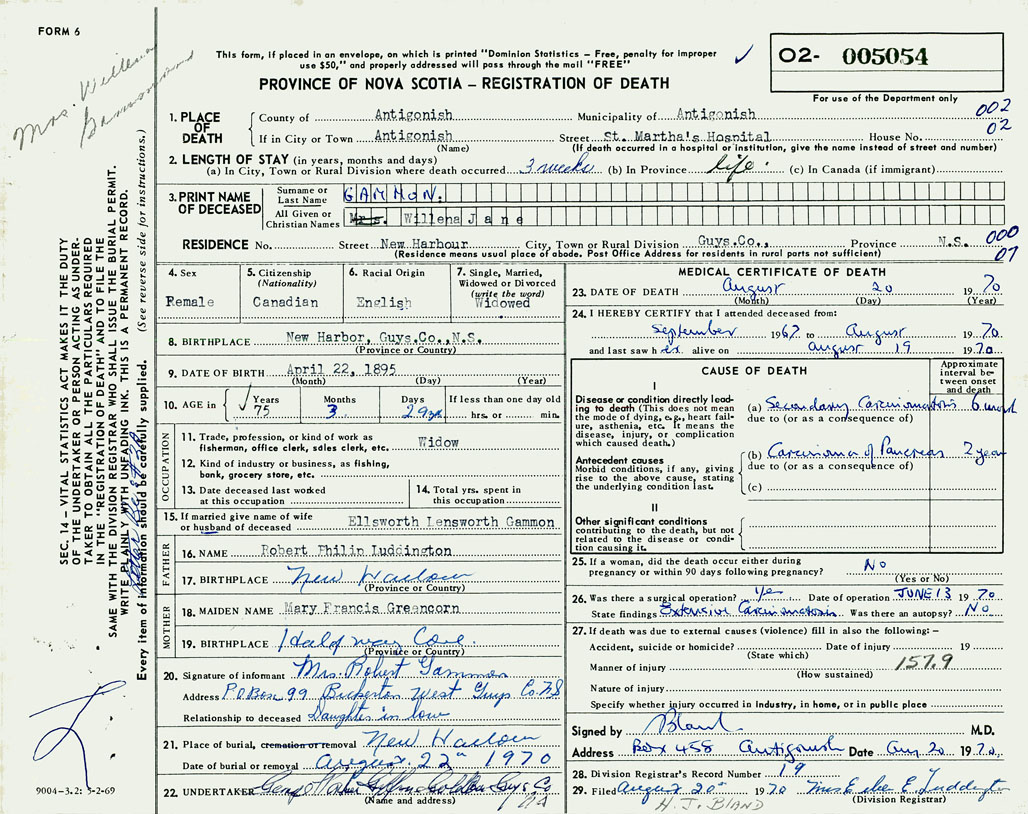 FORM 6
Mrs. Willena
Gammon
This form, if placed in an envelope, on which is printed "Dominion Statistics – Free, penalty for improper
use $50," and properly addressed will pass through the mail "FREE"
PROVINCE OF NOVA SCOTIA – REGISTRATION OF DEATH
O2- 005054
For use of the Department only
1. PLACE OF DEATH
County of Antigonish Municipality of Antigonish 002
If in City or Town Antigonish Street St. Martha's Hospital House No. 02
(Name) (If death occurred in a hospital or institution, give the name instead of street and number)
2. LENGTH OF STAY (in years, months and days)
(a) In City, Town or Rural Division where death occurred 3 weeks (b) In Province life (c) In Canada (if immigrant)
3. PRINT NAME OF DECEASED
Surname or Last Name GAMMON.
All Given or Christian Names Mrs. Willena Jane
RESIDENCE No. Street New Harbour City, Town or Rural Division Guys.Co., Province N.S. 000
(Residence means usual place of abode. Post Office Address for residents in rural parts not sufficient) 07
4. Sex
Female
5. Citizenship
(Nationality)
Canadian
6. Racial Origin
English
7. Single, Married,
Widowed or Divorced
(write the word)
Widowed
8. BIRTHPLACE New Harbor, Guys.Co.,N.S.
(Province or Country)
9. DATE OF BIRTH April 22, 1895
(Month) (Day) (Year)
10. AGE in Years 75 Months 3 Days 29 If less than one day old
hrs. or min.
OCCUPATION
11. Trade, profession, or kind of work as
fisherman, office clerk, sales clerk, etc. Widow
12. Kind of industry or business, as fishing,
bank, grocery store, etc.
13. Date deceased last worked
at this occupation
14. Total yrs. spent in
this occupation
15. If married give name of wife
or husband of deceased Ellsworth Lensworth Gammon
FATHER
16. NAME Robert Philip Luddington
17. BIRTHPLACE New Harbour
(Province or Country)
MOTHER
18. MAIDEN NAME Mary Francis Greencorn
19. BIRTHPLACE Half way Cove
(Province or Country)
20. Signature of informant Mrs. Robert Gammon
Address P.O Box 99 Bickerton West Guys Co NS
Relationship to deceased Daughter in low
21. Place of burial, cremation or removal New Harbour
Date of burial or removal August 22nd 1970
22. UNDERTAKER Goldboro Guys Co
(Name and address) NS
MEDICAL CERTIFICATE OF DEATH
23. DATE OF DEATH August 20 1970
(Month) (Day) (Year)
24. I HEREBY CERTIFY that I attended deceased from:
September 1967 to August 1970
and last saw her alive on August 19 1970
CAUSE OF DEATH
Approximate
interval be-
tween onset
and death
I
Disease or condition directly lead-
ing to death (This does not mean
the mode of dying, e.g., heart fail-
ure, asthenia, etc. It means the
disease, injury, or complication
which caused death.)
(a) Secondary Carcinomatosis 6 month
due to (or as a consequence of)
Antecedent causes
Morbid conditions, if any, giving
rise to the above cause, stating
the underlying condition last.
(b) Carcinoma of Pancreas 2 year
due to (or as a consequence of)
(c)
II
Other significant conditions
contributing to the death, but not
related to the disease or condi-
tion causing it.
25. If a woman, did the death occur either during
pregnancy or within 90 days following pregnancy? No
(Yes or No)
26. Was there a surgical operation? Yes Date of operation JUNE 13 1970
State findings Extensive Carcinomatosis Was there an autopsy? No
27. If death was due to external causes (violence) fill in also the following: –
Accident, suicide or homicide? Date of injury 19
(State which)
Manner of injury 157.9
(How sustained)
Nature of injury
Specify whether injury occurred in industry, in home, or in public place
Signed by Bland M.D.
Address Box 458 Antigonish Date Aug 20 1970
28. Division Registrar's Record Number 19
29. Filed August 20th 1970 Mrs E Luddington
H. J. BLAND (Division Registrar)
SEC. 14 – VITAL STATISTICS ACT MAKES IT THE DUTY
OF THE UNDERTAKER OR PERSON ACTING AS UNDER-
TAKER TO OBTAIN ALL THE PARTICULARS REQUIRED
IN THE "REGISTRATION OF DEATH" AND TO FILE THE
SAME WITH THE DIVISION REGISTRAR WHO SHALL ISSUE THE BURIAL PERMIT.
WRITE PLAINLY WITH UNFADING INK. THIS IS A PERMANENT RECORD.
Every item of information should be carefully supplied. (See reverse side for instructions.)
9004-3.2: 5-2-69